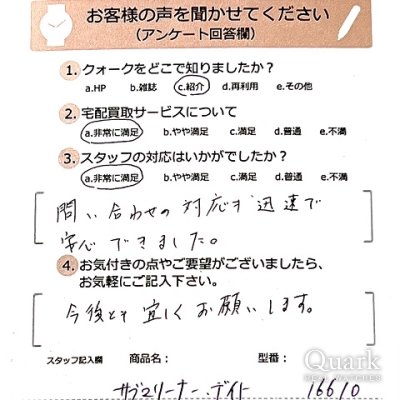 お客様の声を聞かせてください
(アンケート回答欄)
1. クォークをどこで知りましたか?
a.HP b.雑誌 c.紹介 d.再利用 e.その他
2. 宅配買取サービスについて
a.非常に満足 b.やや満足 c.満足 d.普通 e.不満
3. スタッフの対応はいかがでしたか?
a.非常に満足 b.やや満足 c.満足 d.普通 e.不満
問い合わせの対応も迅速で
安心できました。
4. お気付きの点やご要望がございましたら、
お気軽にご記入下さい。
今後とも宜しくお願いします。
Quark
REAL WATCHES
スタッフ記入欄 商品名: 型番:
サブマリーナー・デイト 16610